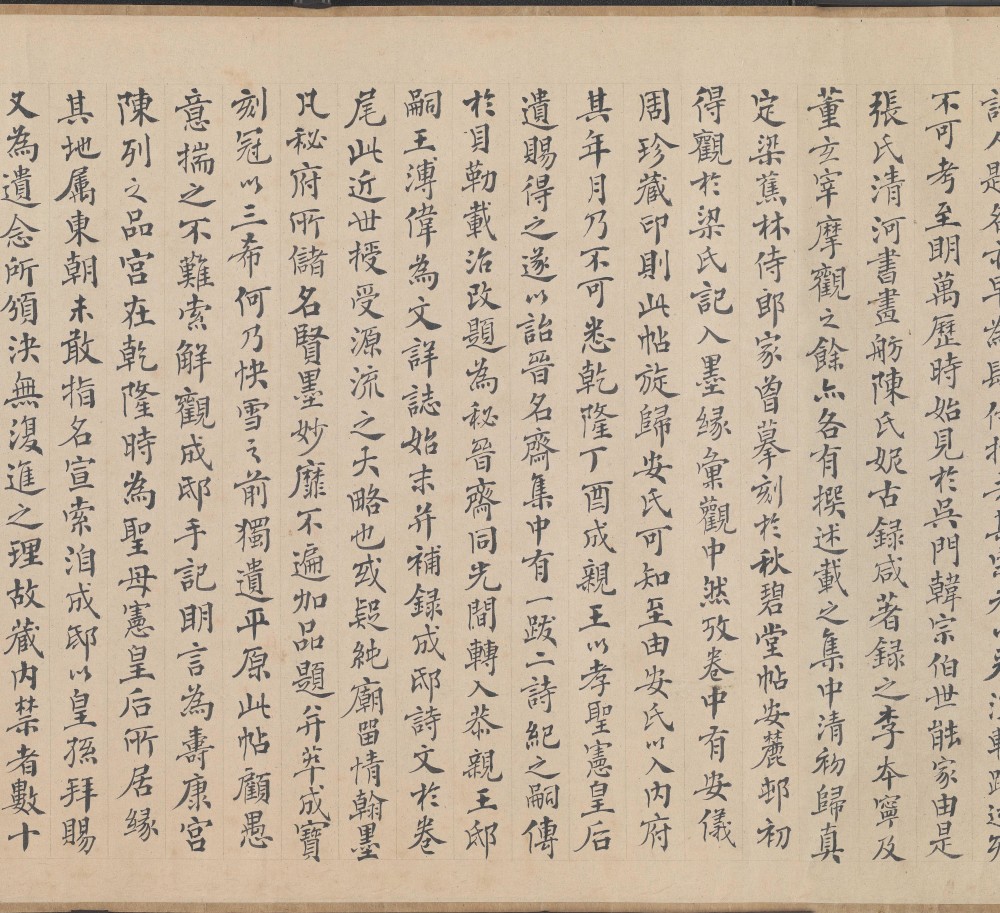 不可考至明萬歷時始見於吳門韓宗伯世能家由是
張氏清河書畫舫陳氏妮古録咸著録之李本寧及
董玄宰摩觀之餘亦各有撰述載之集中清初歸真
定梁蕉林侍郎家曾摹刻於秋碧堂帖安麓邨初
得觀於梁氏記入墨緣彙觀中然攷卷中有安儀
周珍藏印則此帖旋歸安氏可知至由安氏以入內府
其年月乃不可悉乾隆丁酉成親王以孝聖憲皇后
遺賜得之遂以詒晉名齋集中有一跋二詩紀之嗣傳
於貝勒載治改題為秘晉齋同光間轉入恭親王邸
嗣王溥偉為文詳誌始末并補録成邸詩文於卷
尾此近世授受源流之大略也或疑純廟留情翰墨
凡秘府所儲名賢墨妙靡不遍加品題并萃成寶
刻冠以三希何乃快雪之前獨遺平原此帖顧愚
意揣之不難索解觀成邸手記明言為壽康宮
陳列之品宮在乾隆時為聖母憲皇后所居緣
其地屬東朝未敢指名宣索洎成邸以皇孫拜賜
又為遺念所頒決無復進之理故藏內禁者數十